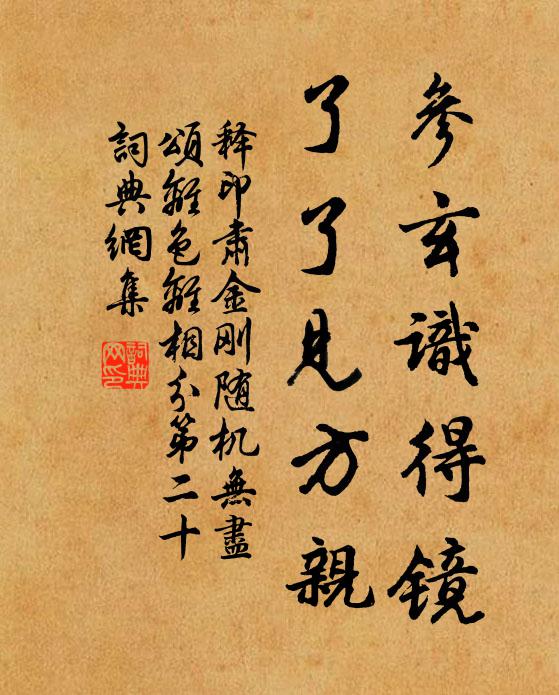 參玄識得镜
了了見方親
释印肅金刚随机無盡
頌離色離相分第二十
詞典網集
詞典
网印